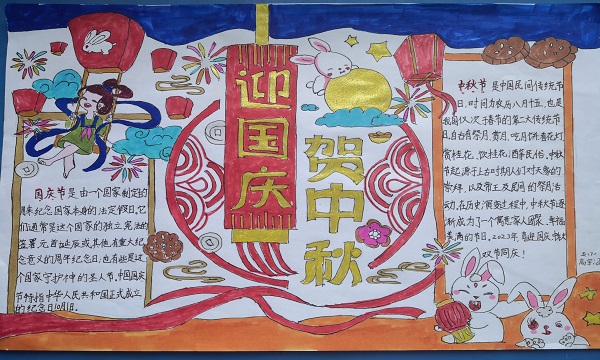 迎国庆
贺中秋
国庆节是由一个国家制定的
用来纪念国家本身的法定假日。它
们通常是这个国家的独立、宪法的
签署、元首诞辰或其他有重大纪
念意义的周年纪念日；也有些是这
个国家守护神的圣人节。中国国庆
节特指中华人民共和国正式成立
的纪念日10月1日。
中秋节是中国民间传统节
日，时间为农历八月十五，也是
我国仅次于春节的第二大传统节
日，自古有祭月、赏月、吃月饼、看花灯、
赏桂花、饮桂花酒等民俗，中秋
节起源于上古时期人们对天象的
崇拜，以及帝王及民间的祭月活
动，在历史演变过程中，中秋节逐
渐成为了一个寓意家人团聚、幸福
美满的节日。2023年喜迎国庆、中秋
双节同庆！